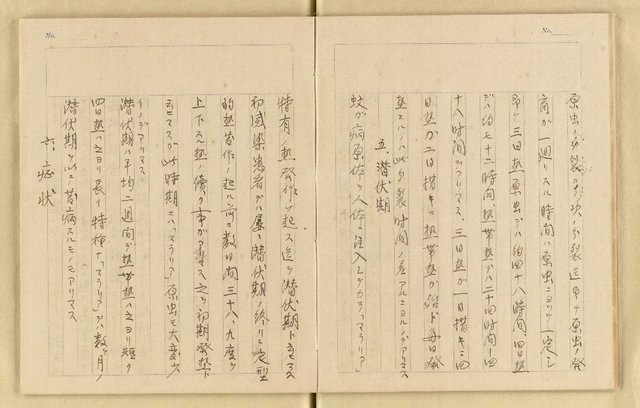 No.
原虫ノ分裂カラ次ノ分裂迄即チ原虫ノ発
育ガ一廻リスル時間ハ原虫ニヨリ一定シ
即チ三日熱原虫デハ約四十八時間四日熱
デハ約七十二時間熱帯熱デハ二十四時間―四
十八時間デアリマス、三日熱ガ一日措キ、四
日熱ガ二日措キ、熱帯熱ガ殆ド毎日発
熱スルノハ此分裂時間ノ差アルニヨルノデアリマス
五、潜伏期
蚊ガ病原体ヲ人体ニ注入シテカラ「マラリア」
No.
特有ノ熱発作ヲ起ス迄ヲ潜伏期ト云ヒマス
初感染患者デハ屡々潜伏期ノ終リニ定型
的熱発作ノ起ル前ニ数日間三十八、九度ヲ
上下スル熱ノ続ク事ガアリマス之ヲ初期発熱ト
云ヒマスガ此時期ニハ「マラリア」原虫モ大変少
イノデアリマス
潜伏期ハ平均二週間ガ熱帯熱ハ之ヨリ短ク
四日熱ハ之ヨリ長イ特種ナ「マラリア」デハ数ヶ月ノ
潜伏期ヲ以テ発病スルモノモアリマス
六、症状